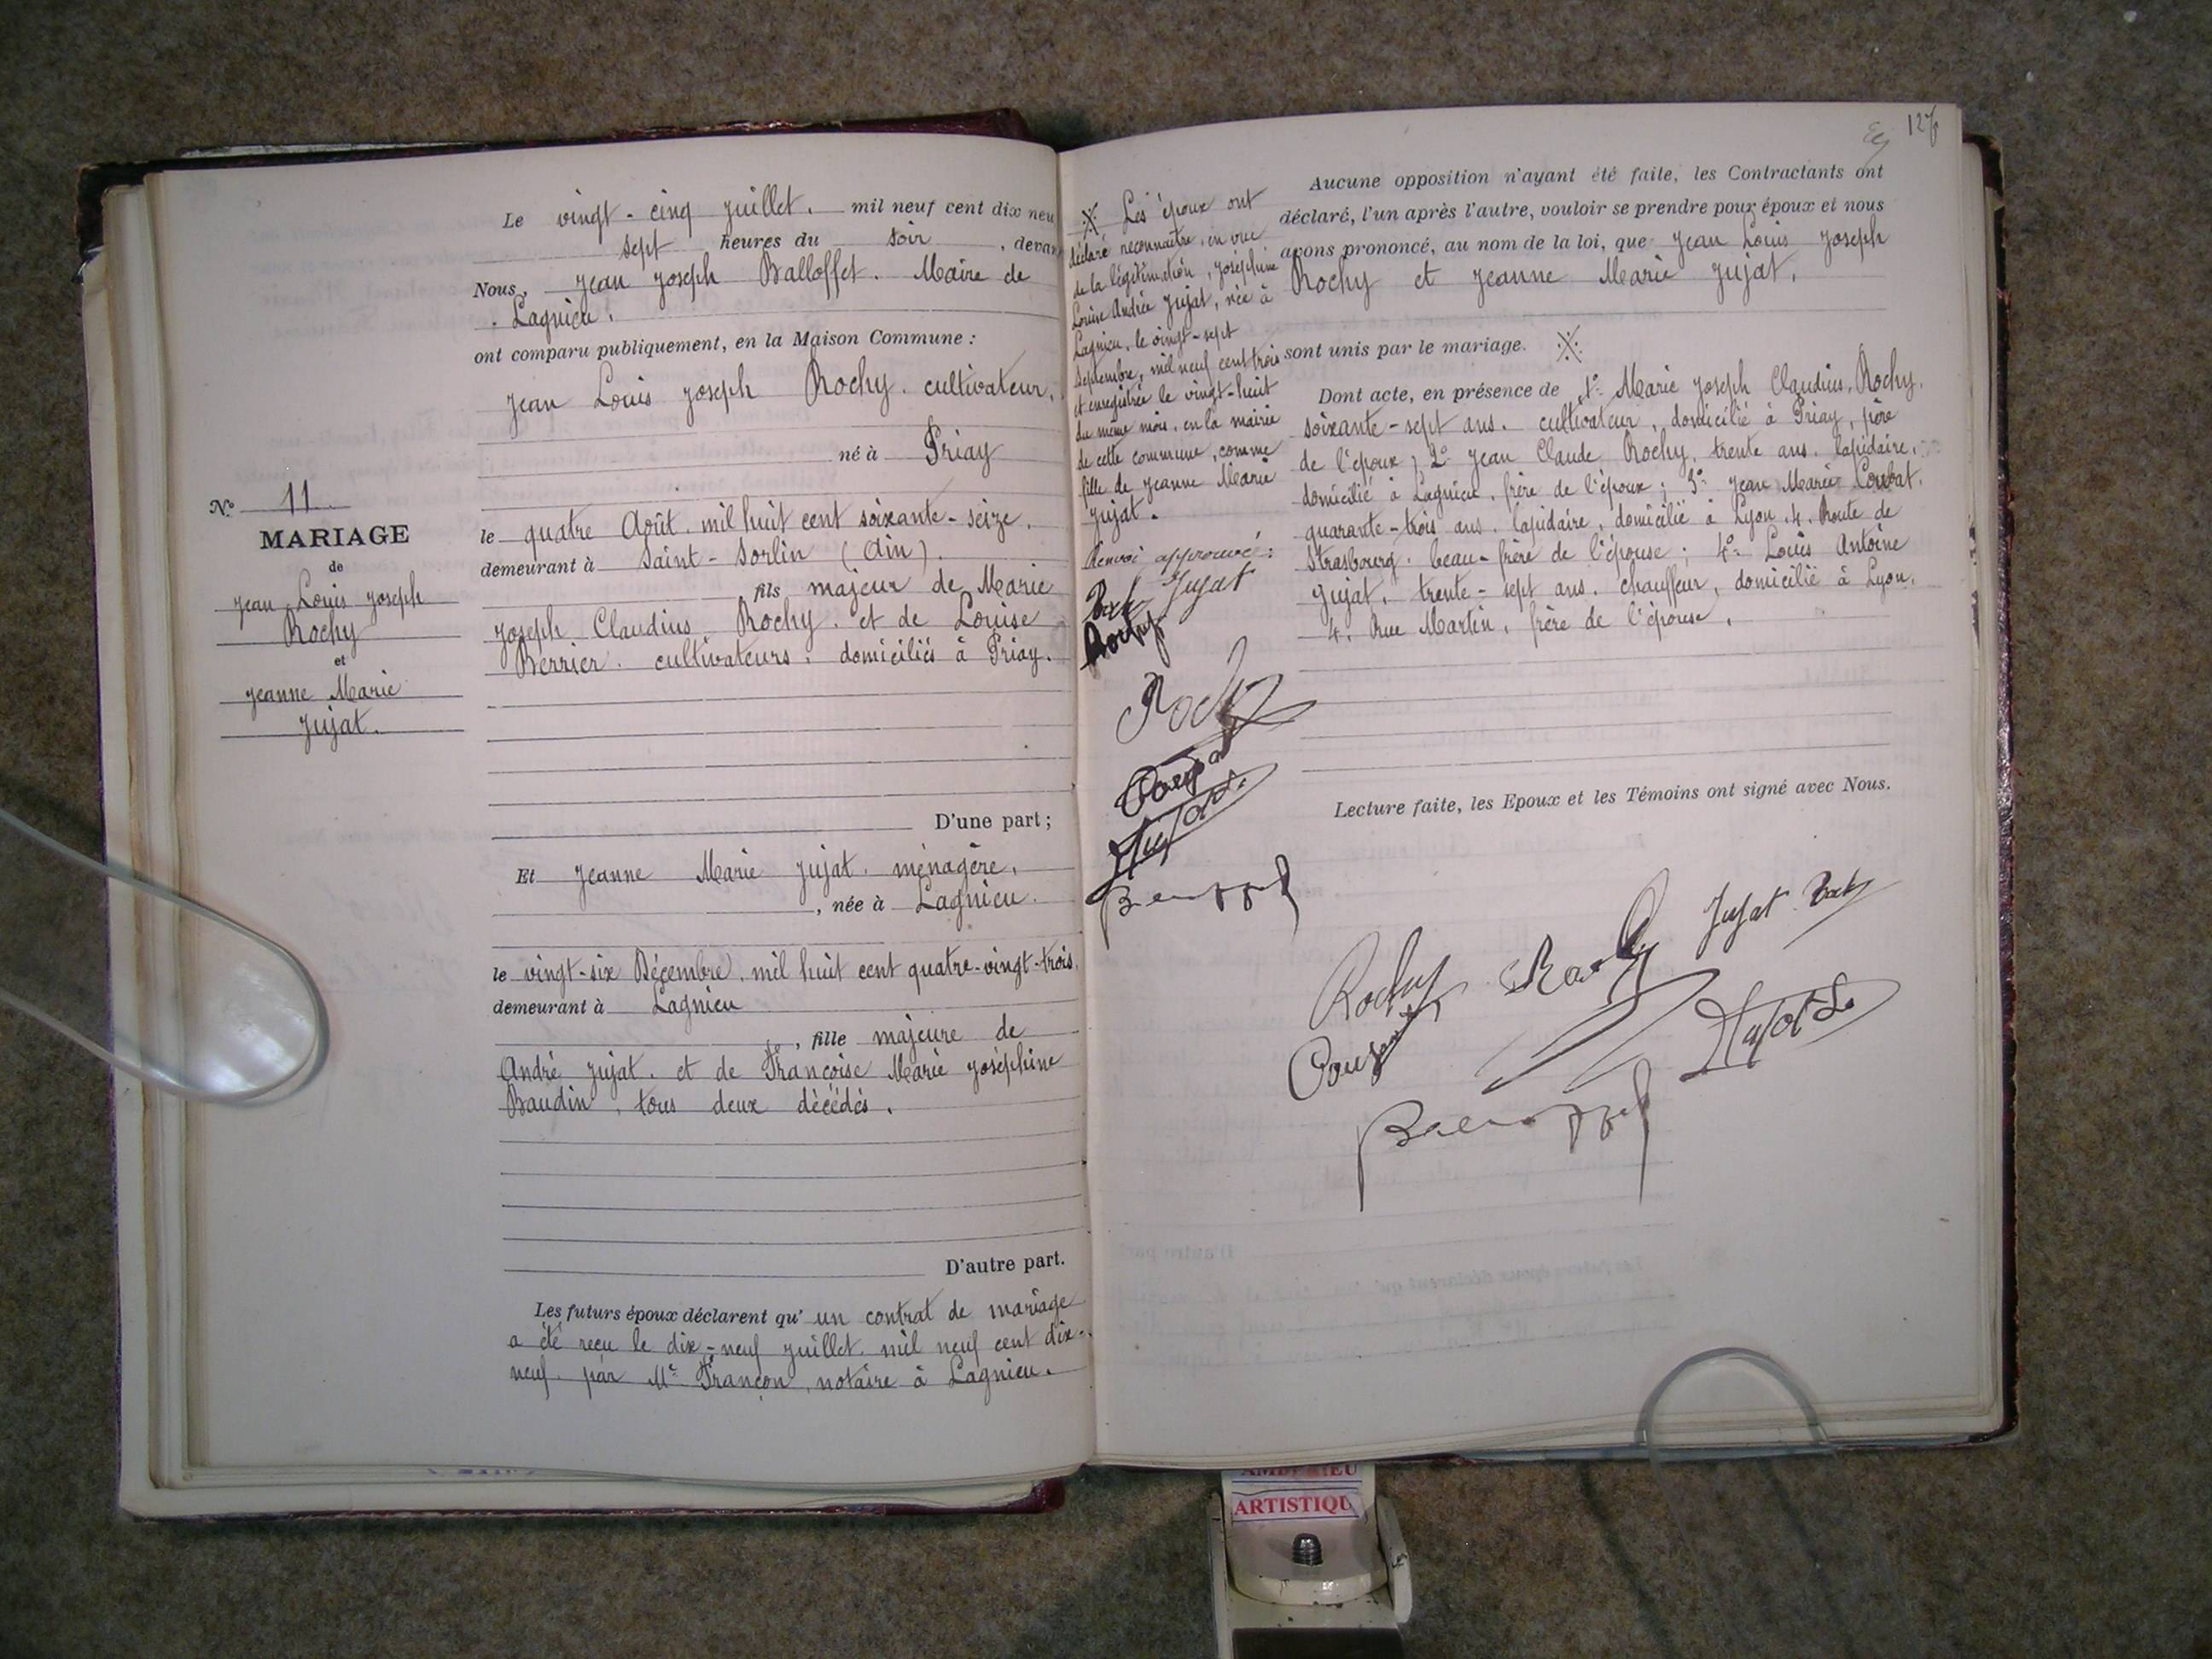 N.° 11
MARIAGE
de
Jean Louis Joseph
Rochy
et
Jeanne Marie
Jujat.
Le vingt-cinq Juillet. mil neuf cent dix neu
sept heures du soir , devan
Nous, Jean Joseph Balloffet. Maire de
Lagnieu.
ont comparu publiquement, en la Maison Commune :
Jean Louis Joseph Rochy. cultivateur.
né à Priay
le quatre Août. mil huit cent soixante-seize.
demeurant à Saint-Sorlin (Ain).
fils majeur de Marie
Joseph Claudius Rochy. et de Louise
Berrier. cultivateurs. domiciliés à Priay.
D'une part ;
Et Jeanne Marie Jujat. ménagère.
, née à Lagnieu
le vingt-six Décembre. mil huit cent quatre-vingt-trois.
demeurant à Lagnieu
, fille majeure de
André Jujat. et de Françoise Marie Joséphine
Baudin, tous deux décédés.
D'autre part.
Les futurs époux déclarent qu' un contrat de mariage
a été reçu le dix-neuf Juillet. mil neuf cent dix-
neuf. par Me Françon, notaire à Lagnieu.
※ Les époux ont
déclaré reconnaitre, en vue
de la légitimation, Joséphine
Louise Andrée Jujat, née à
Lagnieu, le vingt-sept
Septembre, mil neuf cent trois
et enregistrée le vingt-huit
du même mois, en la mairie
de cette commune, comme
fille de Jeanne Marie
Jujat.
Renvoi approuvé :
Jujat
Rochy
Rochy
Jujat
127
Aucune opposition n'ayant été faite, les Contractants ont
déclaré, l'un après l'autre, vouloir se prendre pour époux et nous
avons prononcé, au nom de la loi, que Jean Louis Joseph
Rochy et Jeanne Marie Jujat.
sont unis par le mariage. ※
Dont acte, en présence de 1° Marie Joseph Claudius, Rochy.
soixante-sept ans. cultivateur, domicilié à Priay, père
de l'époux ; 2° Jean Claude Rochy, trente ans. lapidaire.
domicilié à Lagnieu, frère de l'époux ; 3° Jean Marie
quarante-trois ans. lapidaire, domicilié à Lyon. 4. Route de
Strasbourg. beau-frère de l'épouse ; 4° Louis Antoine
Jujat, trente-sept ans. chauffeur, domicilié à Lyon.
4. Rue Martin, frère de l'épouse.
Lecture faite, les Epoux et les Témoins ont signé avec Nous.
Jujat
Rochy
Rochy
Jujat L.
ARTISTIQU